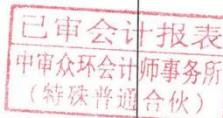 已审会计报表
中审众环会计师事务所
（特殊普通合伙）